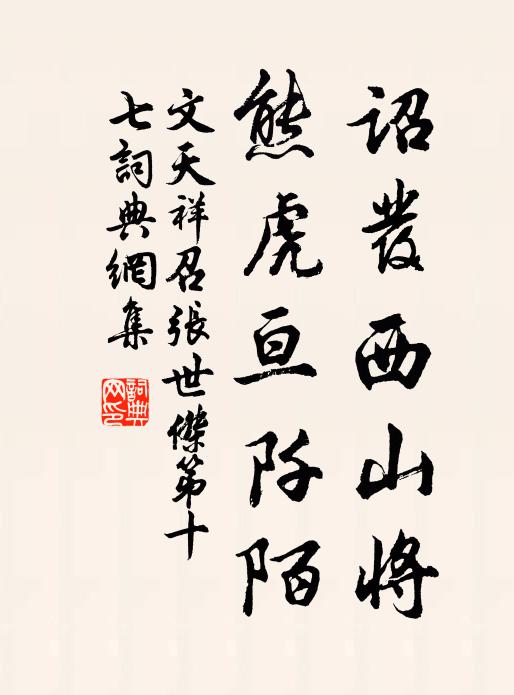 詔發西山將
熊虎亘阡陌
文天祥召張世傑第十
七詞典網集
詞典
网印